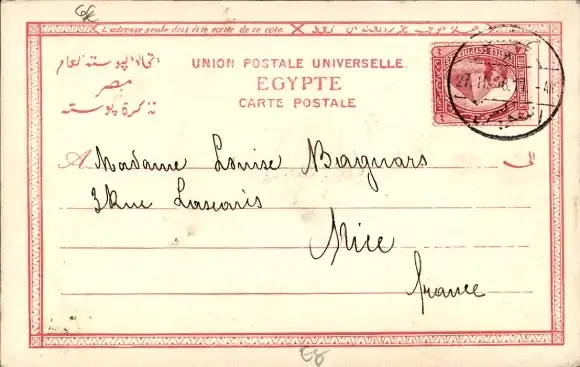 L'adresse seule doit être écrite de ce côté.
UNION POSTALE UNIVERSELLE
EGYPTE
CARTE POSTALE
اتحاد البوسته العام
مصر
تذكرة بوسته
A Madame Louise Bagnars
3 Rue Lascaris
Nice
france